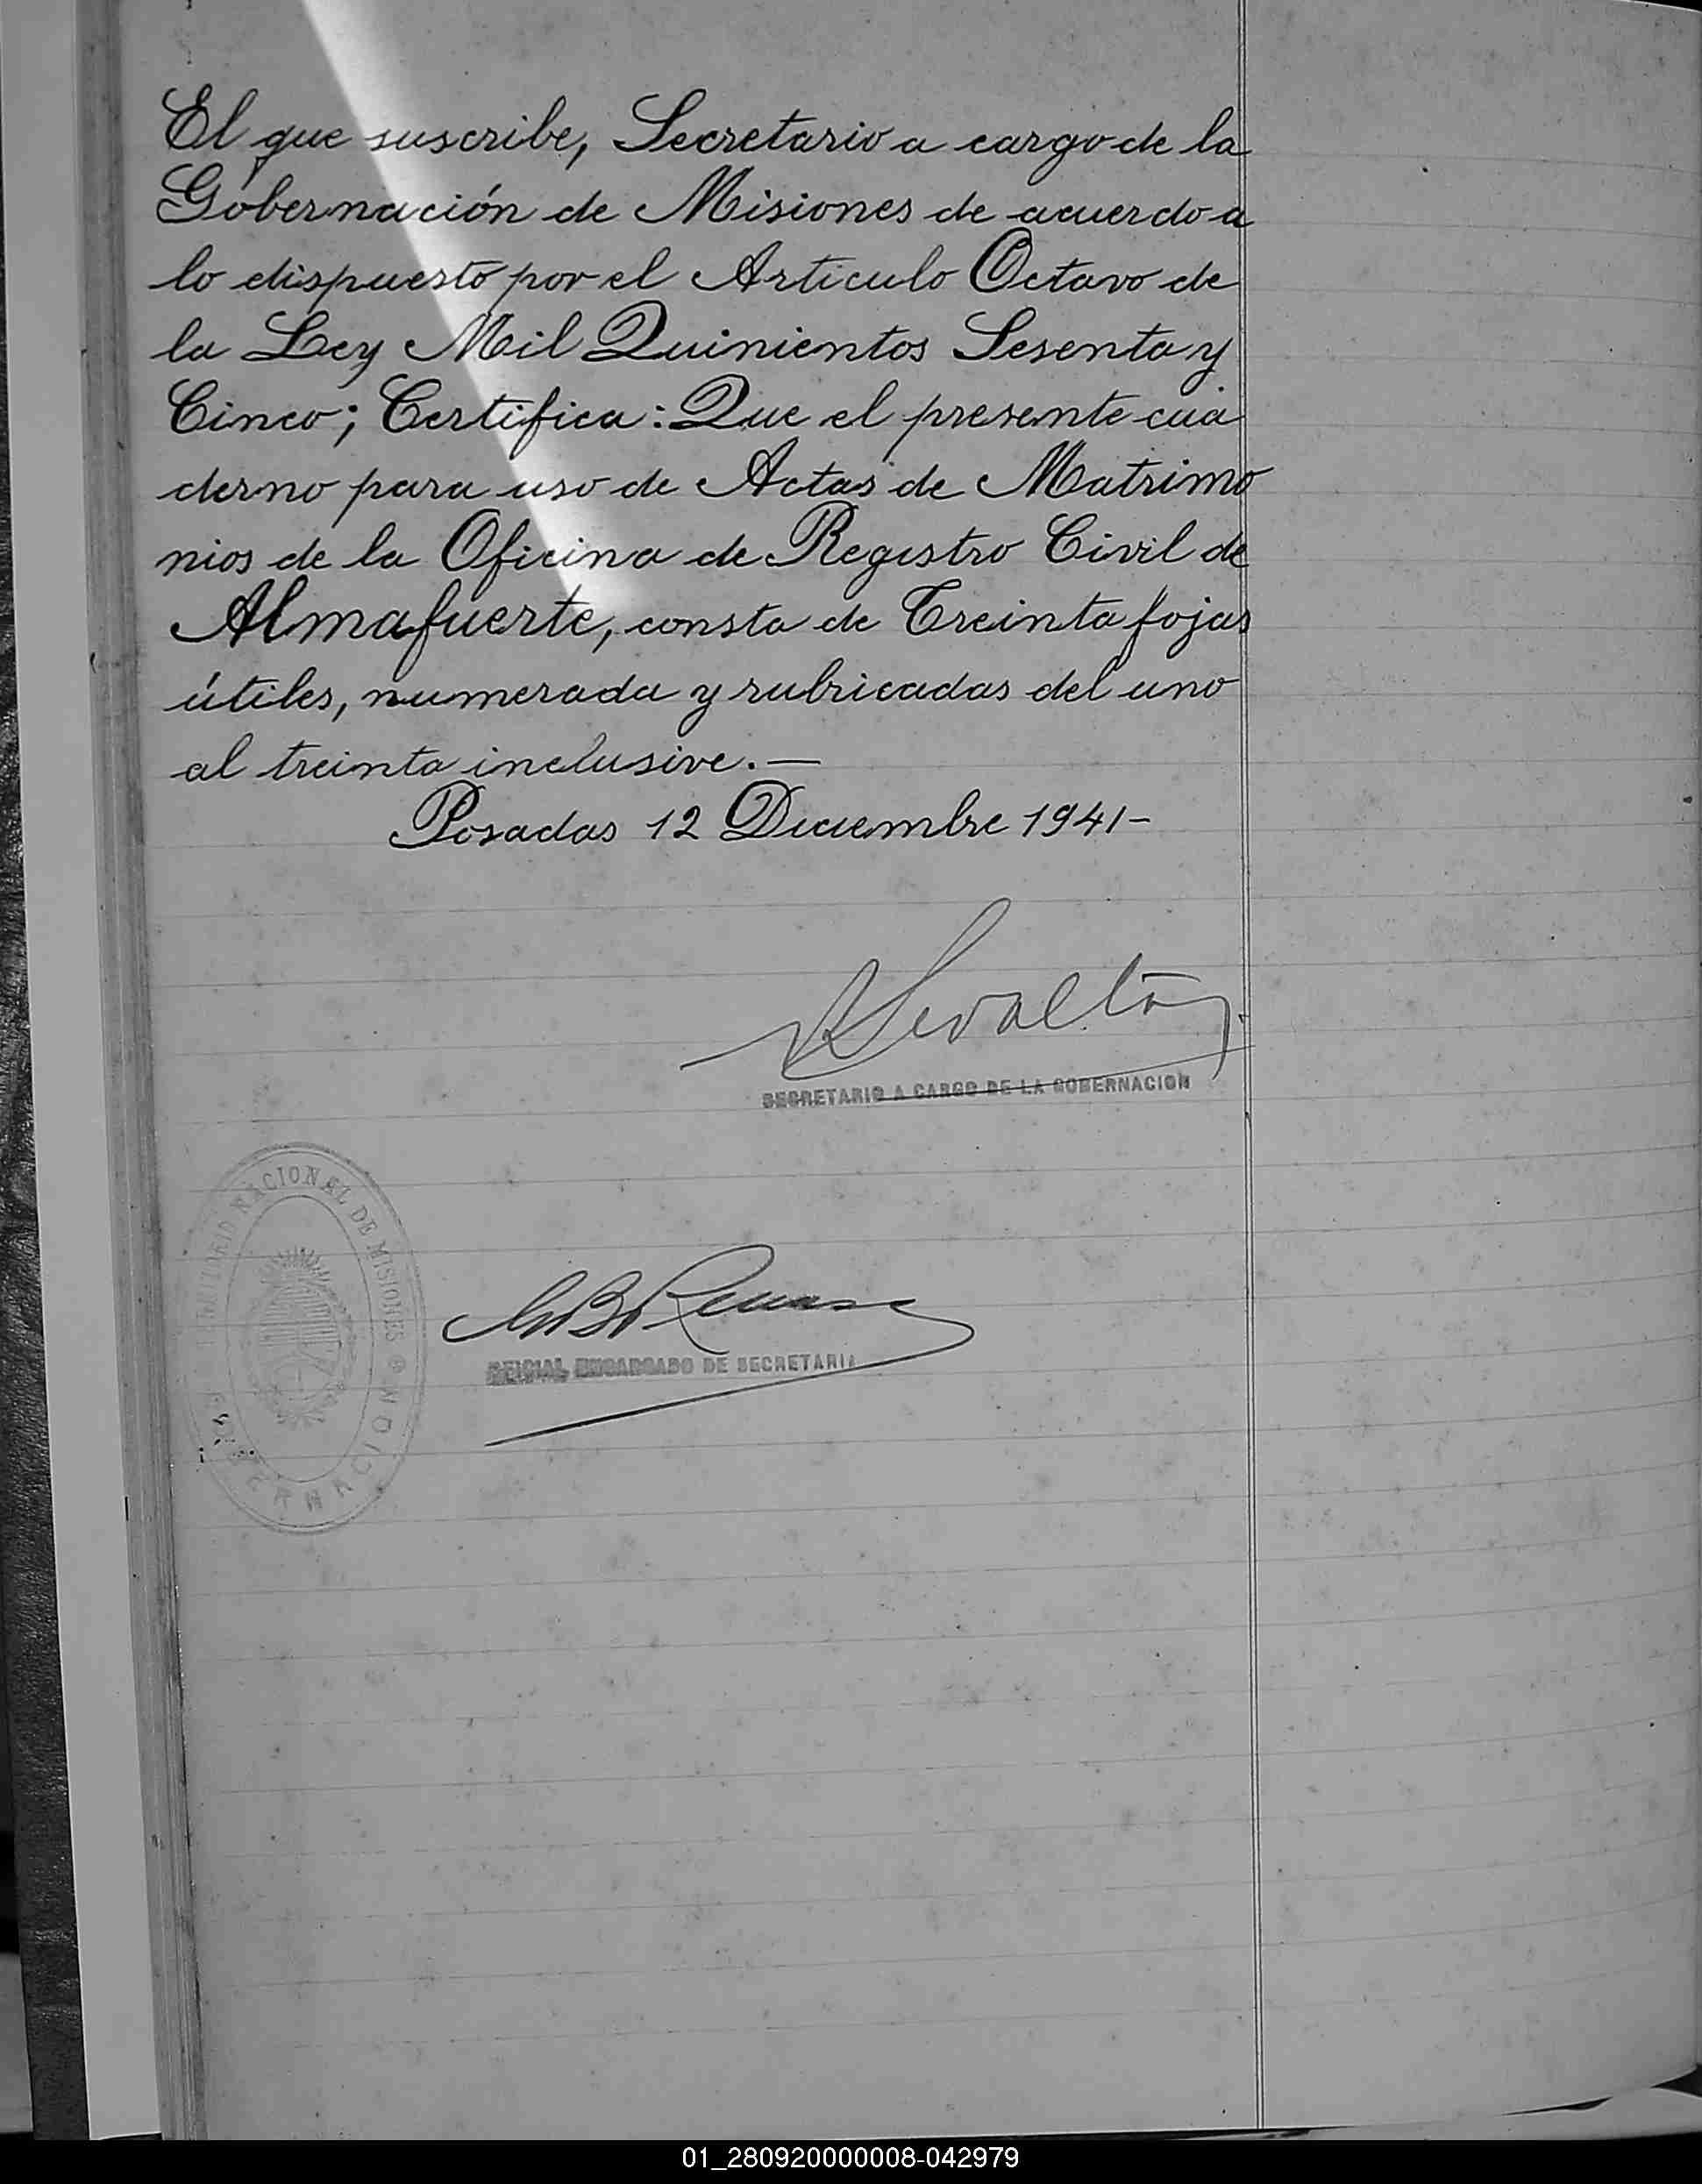 El que suscribe, Secretario a cargo de la
Gobernación de Misiones de acuerdo a
lo dispuesto por el Articulo Octavo de
la Ley Mil Quinientos Sesenta y
Cinco; Certifica: Que el presente cua
derno para uso de Actas de Matrimo
nios de la Oficina de Registro Civil de
Almafuerte, consta de Treinta fojas
útiles, numerada y rubricadas del uno
al treinta inclusive.—
Posadas 12 Diciembre 1941-
SECRETARIO A CARGO DE LA GOBERNACION
TERRITORIO NACIONAL DE MISIONES
GOBERNACION
OFICIAL ENCARGADO DE SECRETARIA
01_280920000008-042979